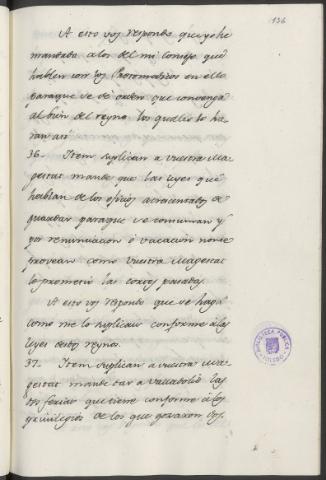 136
A esto vos respondo que yo he
mandado a los del mi consejo que
hablen con los Protomedicos en ello
para que se de orden que convenga
al bien del reyno los quales lo ha-
ran asi
36. Item suplican a vuestra Ma-
gestad mande que las leyes que
hablan de los oficios acrecentados se
guarden para que se consuman y
por renunciacion o vacacion no se
provean como vuestra Magestad
lo prometió las cortes pasadas
A esto vos respondo que se haga
como me lo suplicais conforme a las
leyes destos reynos.
37. Item suplican a vuestra Ma-
gestad mande dar a Valladolid las
dos ferias que tiene conforme a los
privilegios de los que gozaron los
BIBLIOTECA PUBLICA
TOLEDO